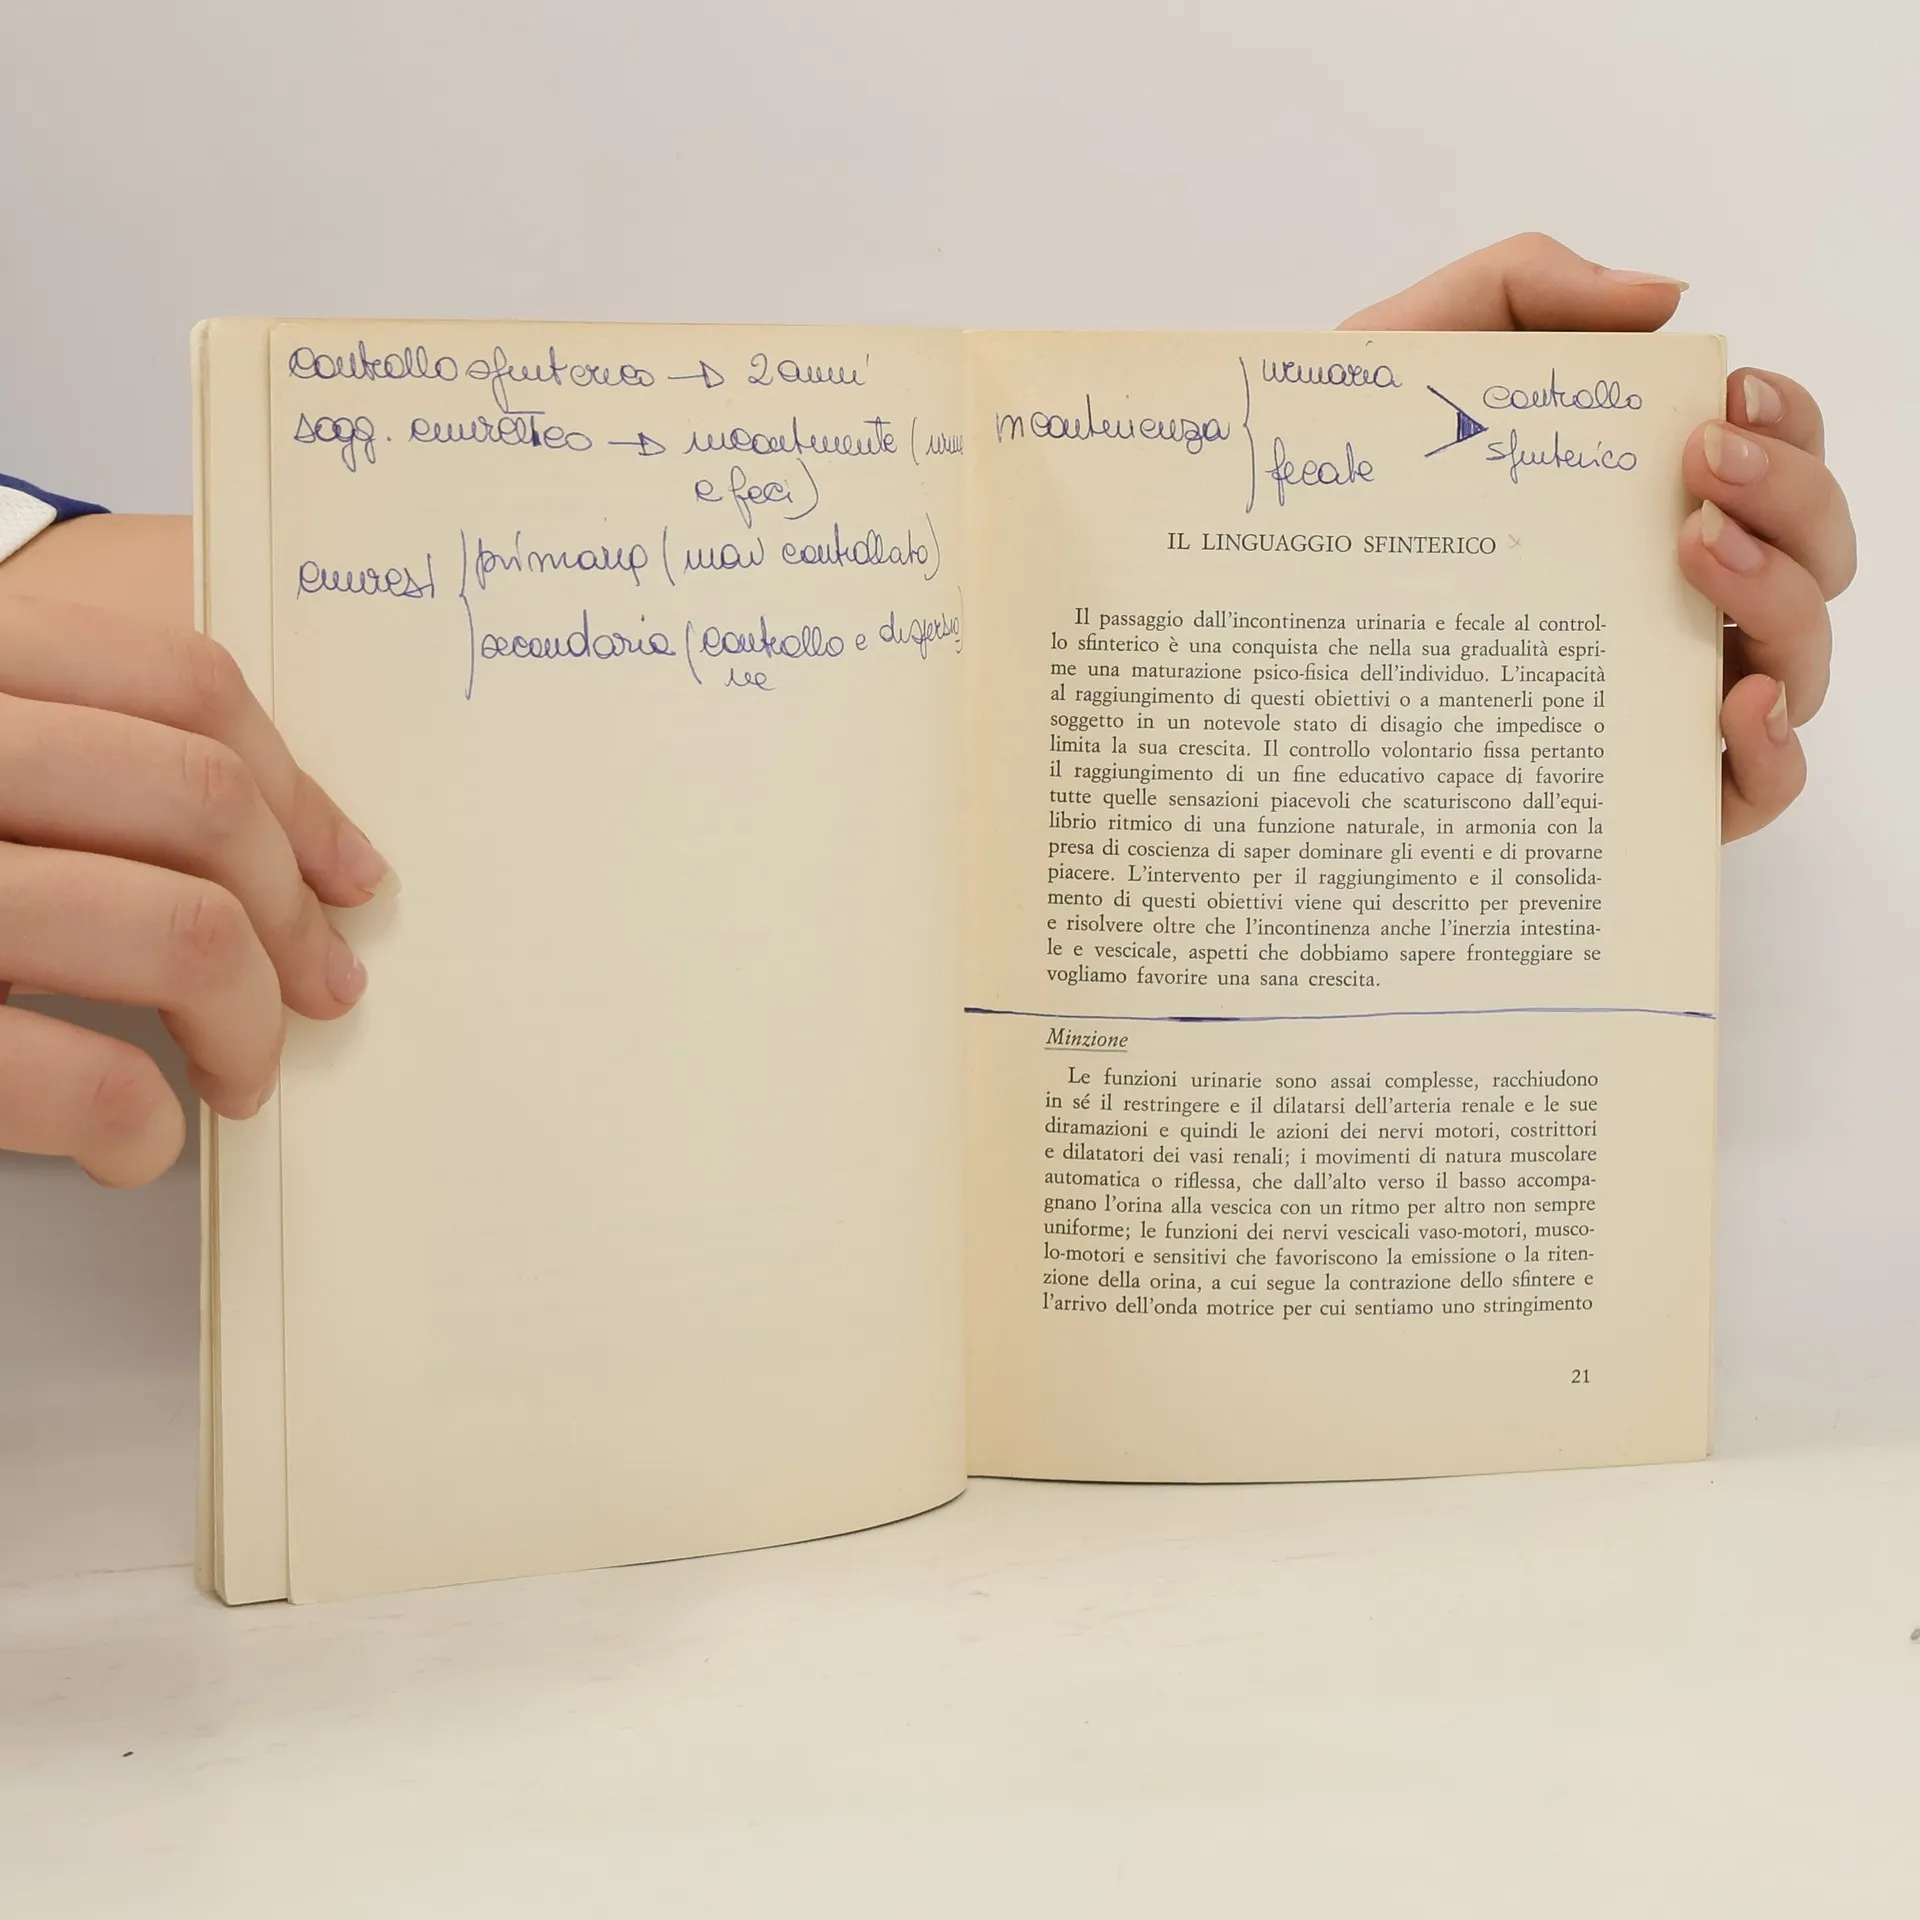 controllo sfinterico → 2 anni
sogg. enuretico → incontinente (urine
e feci)
enuresi
primaria (mai controllato)
secondaria (controllo e
ne
incontinenza
urinaria
fecale
controllo
sfinterico
IL LINGUAGGIO SFINTERICO ×
Il passaggio dall'incontinenza urinaria e fecale al control-
lo sfinterico è una conquista che nella sua gradualità espri-
me una maturazione psico-fisica dell'individuo. L'incapacità
al raggiungimento di questi obiettivi o a mantenerli pone il
soggetto in un notevole stato di disagio che impedisce o
limita la sua crescita. Il controllo volontario fissa pertanto
il raggiungimento di un fine educativo capace di favorire
tutte quelle sensazioni piacevoli che scaturiscono dall'equi-
librio ritmico di una funzione naturale, in armonia con la
presa di coscienza di saper dominare gli eventi e di provarne
piacere. L'intervento per il raggiungimento e il consolida-
mento di questi obiettivi viene qui descritto per prevenire
e risolvere oltre che l'incontinenza anche l'inerzia intestina-
le e vescicale, aspetti che dobbiamo sapere fronteggiare se
vogliamo favorire una sana crescita.
Minzione
Le funzioni urinarie sono assai complesse, racchiudono
in sé il restringere e il dilatarsi dell'arteria renale e le sue
diramazioni e quindi le azioni dei nervi motori, costrittori
e dilatatori dei vasi renali; i movimenti di natura muscolare
automatica o riflessa, che dall'alto verso il basso accompa-
gnano l'orina alla vescica con un ritmo per altro non sempre
uniforme; le funzioni dei nervi vescicali vaso-motori, musco-
lo-motori e sensitivi che favoriscono la emissione o la riten-
zione della orina, a cui segue la contrazione dello sfintere e
l'arrivo dell'onda motrice per cui sentiamo uno stringimento
21